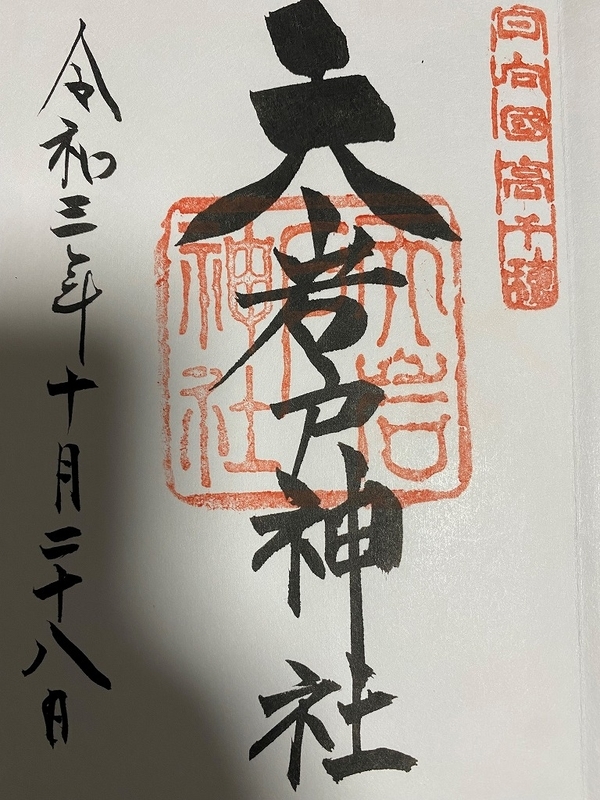 日向國高千穂
天岩戸神社
天岩戸神社
令和三年十月二十八日